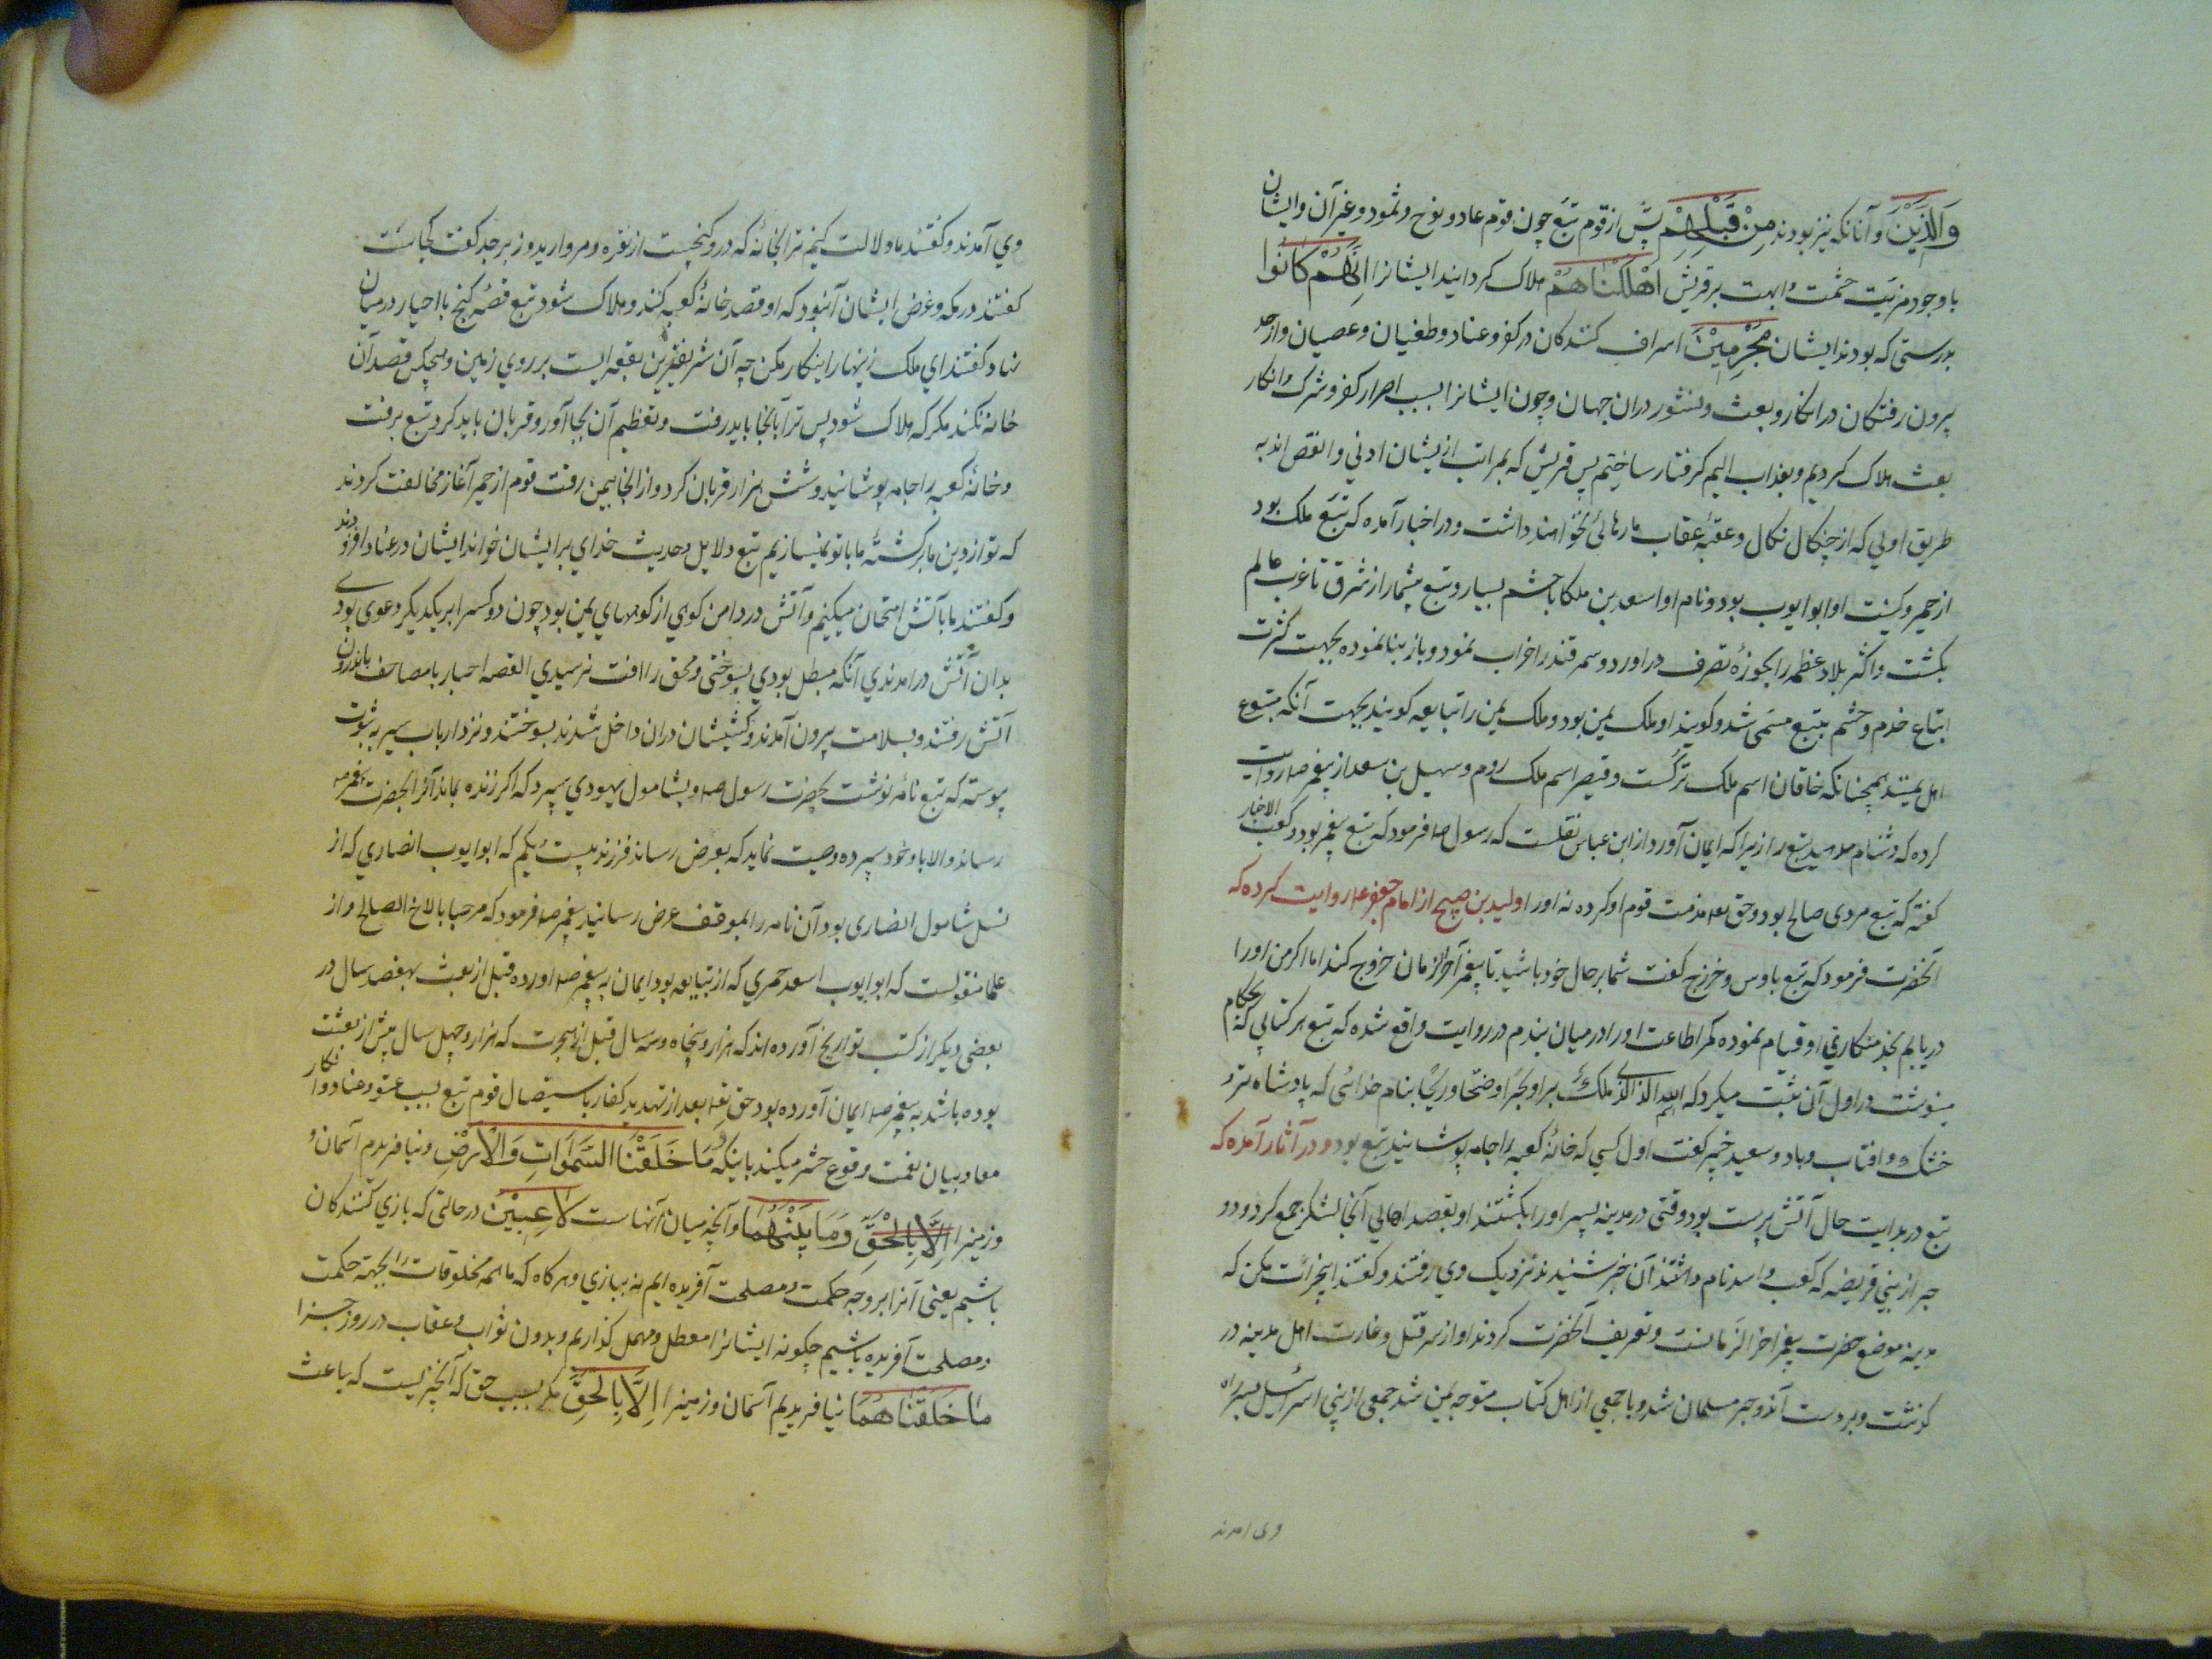 وَالَّذِیْنَ و آنانکه نیز بودند مِنْ قَبْلِهِمْ پیش از قوم تبع چون قوم عاد و نوح و ثمود و غیر آن و ایشان
با وجود مزیت حشمت و ابهت بر قریش اَهْلَكْنَاهُمْ هلاک کردانیدیم ایشانرا اِنَّهُمْ كَانُوا
بدرستی که بودند ایشان مُجْرِمِیْنَ اسراف کنندکان در کفر و عناد و طغیان و عصیان و از حد
پیرون رفتکان در انکار و بعث و نشور دران جهان و چون ایشانرا بسبب اصرار کفر و شرک و انکار
بعث هلاک کردیم و بعذاب الیم کرفتار ساختیم پس قریش که بمراتب ازیشان ادنی و انقص اند به
طریق اولی که از چنکال نکال و عقبهٔ عقاب ما رهائی نخواهند داشت و در اخبار آمده که تبع ملک بود
از حمیر و کنیت او ابو ایوب بود و نام او اسعد بن ملکا با حشم بسیار و تبع بیشمار از شرق تا غرب عالم
بکشت و اکثر بلاد عظمه را بحوزهٔ تصرف در اورد و سمرقند را خراب نمود و باز بنا نموده بجهت کثرت
اتباع خدم و حشم بتبع مسمی شد و کویند او ملک یمن بود و ملک یمن را تبایعه کویند بجهت آنکه متبوع
اهل یمنند همچنانکه خاقان اسم ملک ترکست و قیصر اسم ملک روم و سهیل بن سعد از پیغمبر ص روایت
کرده که دشنام مدهید تبع را زیرا که ایمان آورد و از ابن عباس نقلست که رسول ص فرمود که تبع پیغمبر بود و کعب الاخبار
کفته که تبع مردی صالح بود و حق تعا مذمت قوم او کرده نه او را و لید بن صبیح از امام جعفر ع روایت کرده که
آنحضرت فرمود که تبع باوس و خزرج کفت شما بر حال خود باشید تا پیغمبر آخر الزمان خروج کند اما اکر من او را
دریابم بخدمتکاری او قیام نموده کمر اطاعت او را در میان بندم در روایت واقع شده که تبع هر کتابی که بحکام
مینوشت در اول آن ثبت میکرد که بسم الله الذی ملک برا و بحرا و ضحا و ریحا بنام خدائی که پادشاه تر و
خشک و افتاب و باد و سعید خیبر کفت اول کسی که خانهٔ کعبه را جامه پوشانید تبع بود و در آثار آمده که
تبع در بدایت حال آتش پرست بود وقتی در مدینه پسر او را بکشتند او بقصد اهالی آنجا لشکر جمع کرد و دو
حبر از بنی قریضه که کعب و اسد نام داشتند آن خبر شنیدند نزدیک وی رفتند و کفتند اینجرائت مکن که
مدینه موضع حضرت پیغمبر اخر الزمانست و تعریف آنحضرت کردند او از سر قتل و غارت اهل مدینه در
کذشت و بر دست آندو حبر مسلمان شد و با جمعی از اهل کتاب متوجه یمن شد جمعی از بنی اسرائیل بسر راه
وی امدند
وی آمدند و کفتند ما دلالت کنیم ترا بخانهٔ که درو کنجیست از نقره و مروارید و زبرجد کفت کجاست
کفتند در مکه و غرض ایشان آنبود که او قصد خانهٔ کعبه کند و هلاک شود تبع قصهٔ کنج با احبار در میان
نهاد کفتند ای ملک زینهار اینکار مکن چه آن شریفترین بقعه ایست بر روی زمین و هیچکس قصد آن
خانه نکند مکر که هلاک شود پس ترا بآنجا باید رفت و تعظیم آن بجا آورد و قربان باید کرد تبع برفت
و خانهٔ کعبه را جامه پوشانید و شش هزار قربان کرد و از آنجا بیمن رفت قوم از حمیر آغاز مخالفت کردند
که تو از دین ما برکشتهٔ ما با تو نمیسازیم تبع دلایل وحدیت خدای بر ایشان خواند ایشان در عناد افزودند
و کفتند ما باآتش امتحان میکنیم و آتش در دامن کوهی از کوههای یمن بود چون دو کس را بر یکدیکر دعوی بودی
بدان آتش در امدندی آنکه مبطل بودی بسوختی و محق را افت نرسیدی القصه احبار با مصاحف باندرون
آتش رفتند و بسلامت پیرون آمدند و کشیشان دران داخل شدند بسوختند و نزد ارباب سیر به ثبوت
پیوسته که تبع نامهٔ نوشت بحضرت رسول ص و بشامول یهودی سپرد که اکر زنده بماند آنرا بحضرت پیغمبر ص
رساند والا باولاد خود سپرده وصیت نماید که بعرض رساند فرزند بیست و یکم که ابو ایوب انصاری که از
نسل شامول انصاری بود آن نامه را بموقف عرض رسانید پیغمبر ص فرمود که مرحبا بالاخ الصالح و از
علما منقولست که ابو ایوب اسعد حمیری که از تبایعه بود ایمان به پیغمبر ص اورده قبل از بعث بهفصد سال در
بعضی دیکر از کتب تواریخ آورده اند که هزار و پنجاه و سه سال قبل از هجرت که هزار و چهل سال پیش از بعثت
بوده باشد به پیغمبر ص ایمان آورده بود حق تعا بعد از تهدید کفار باستیصال قوم تبع بسبب عتو و عناد و انکار
معاد بیان نعمت وقوع حشر میکند باینکه وَ مَا خَلَقْنَا السَّمَوَاتِ وَالْاَرْضِ و نیافریدیم آسمان و
و زمینرا اِلَّا بِالْحَقِّ وَمَا بَیْنَهُمَا و آنچه میان آنهاست لَاعِبِیْنَ در حالتی که بازی کنندکان
باشیم یعنی آنرا بر وجه حکمت و مصلحت آفریده ایم نه ببازی و هر کاه که ما همه مخلوقات را بجهة حکمت
و مصلحت آفریده باشیم چکونه ایشانرا معطل و مهمل کذاریم و بدون ثواب و عقاب در روز جزا
مَا خَلَقْنَاهُمَا نیافریدیم آسمان و زمینرا اِلَّا بِالْحَقِّ مکر بسبب حق که آنچیزیست که باعث